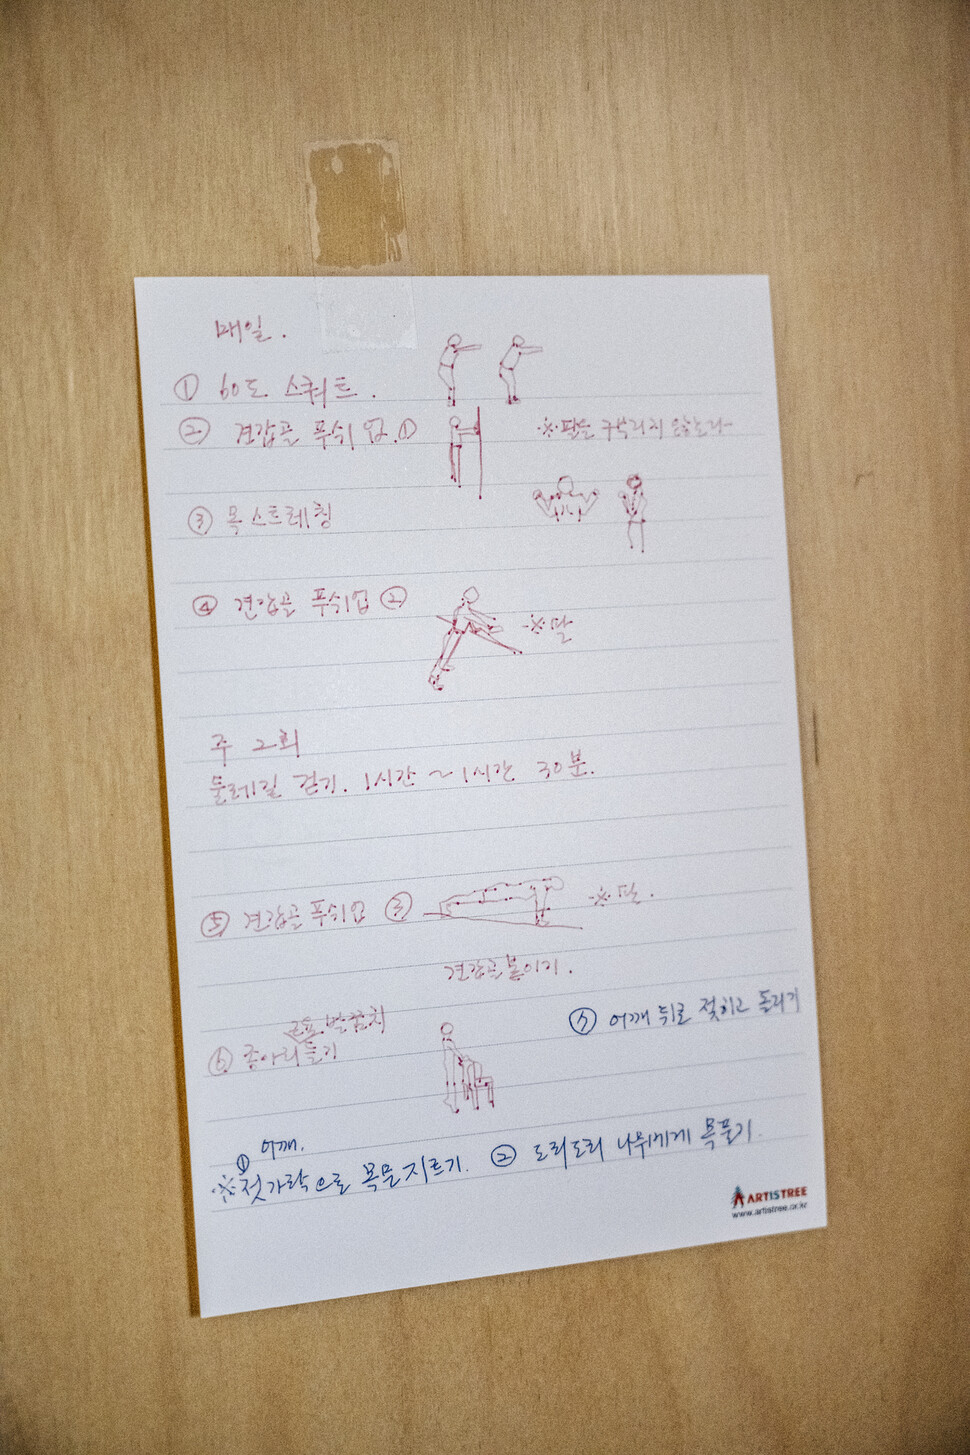 매일.
① 60도 스쿼트.
② 견갑골 푸쉬 업. ①
※ 팔은 구부리지 않는다
③ 목 스트레칭
④ 견갑골 푸쉬업 ②
※ 팔
주 2회
둘레길 걷기. 1시간 ~ 1시간 30분.
⑤ 견갑골 푸쉬업 ③
※ 팔.
견갑골 붙이기.
발꿈치
⑥ 종아리 들기
어깨 뒤로 젖히고 돌리기
어깨.
※ ① 젓가락으로 목문지르기. ② 도리도리 나무에게 목풀기.
ARTISTREE
www.artistree.or.kr